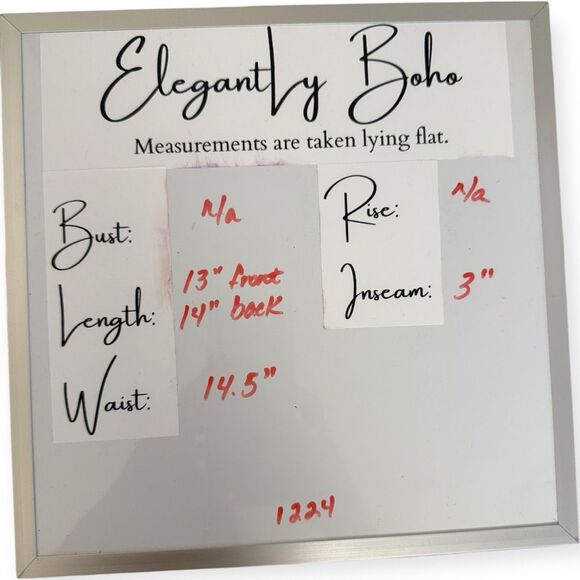 Elegantly Boho
Measurements are taken lying flat.
Bust: n/a
Rise: n/a
Length: 13" front
14" back
Inseam: 3"
Waist: 14.5"
1224